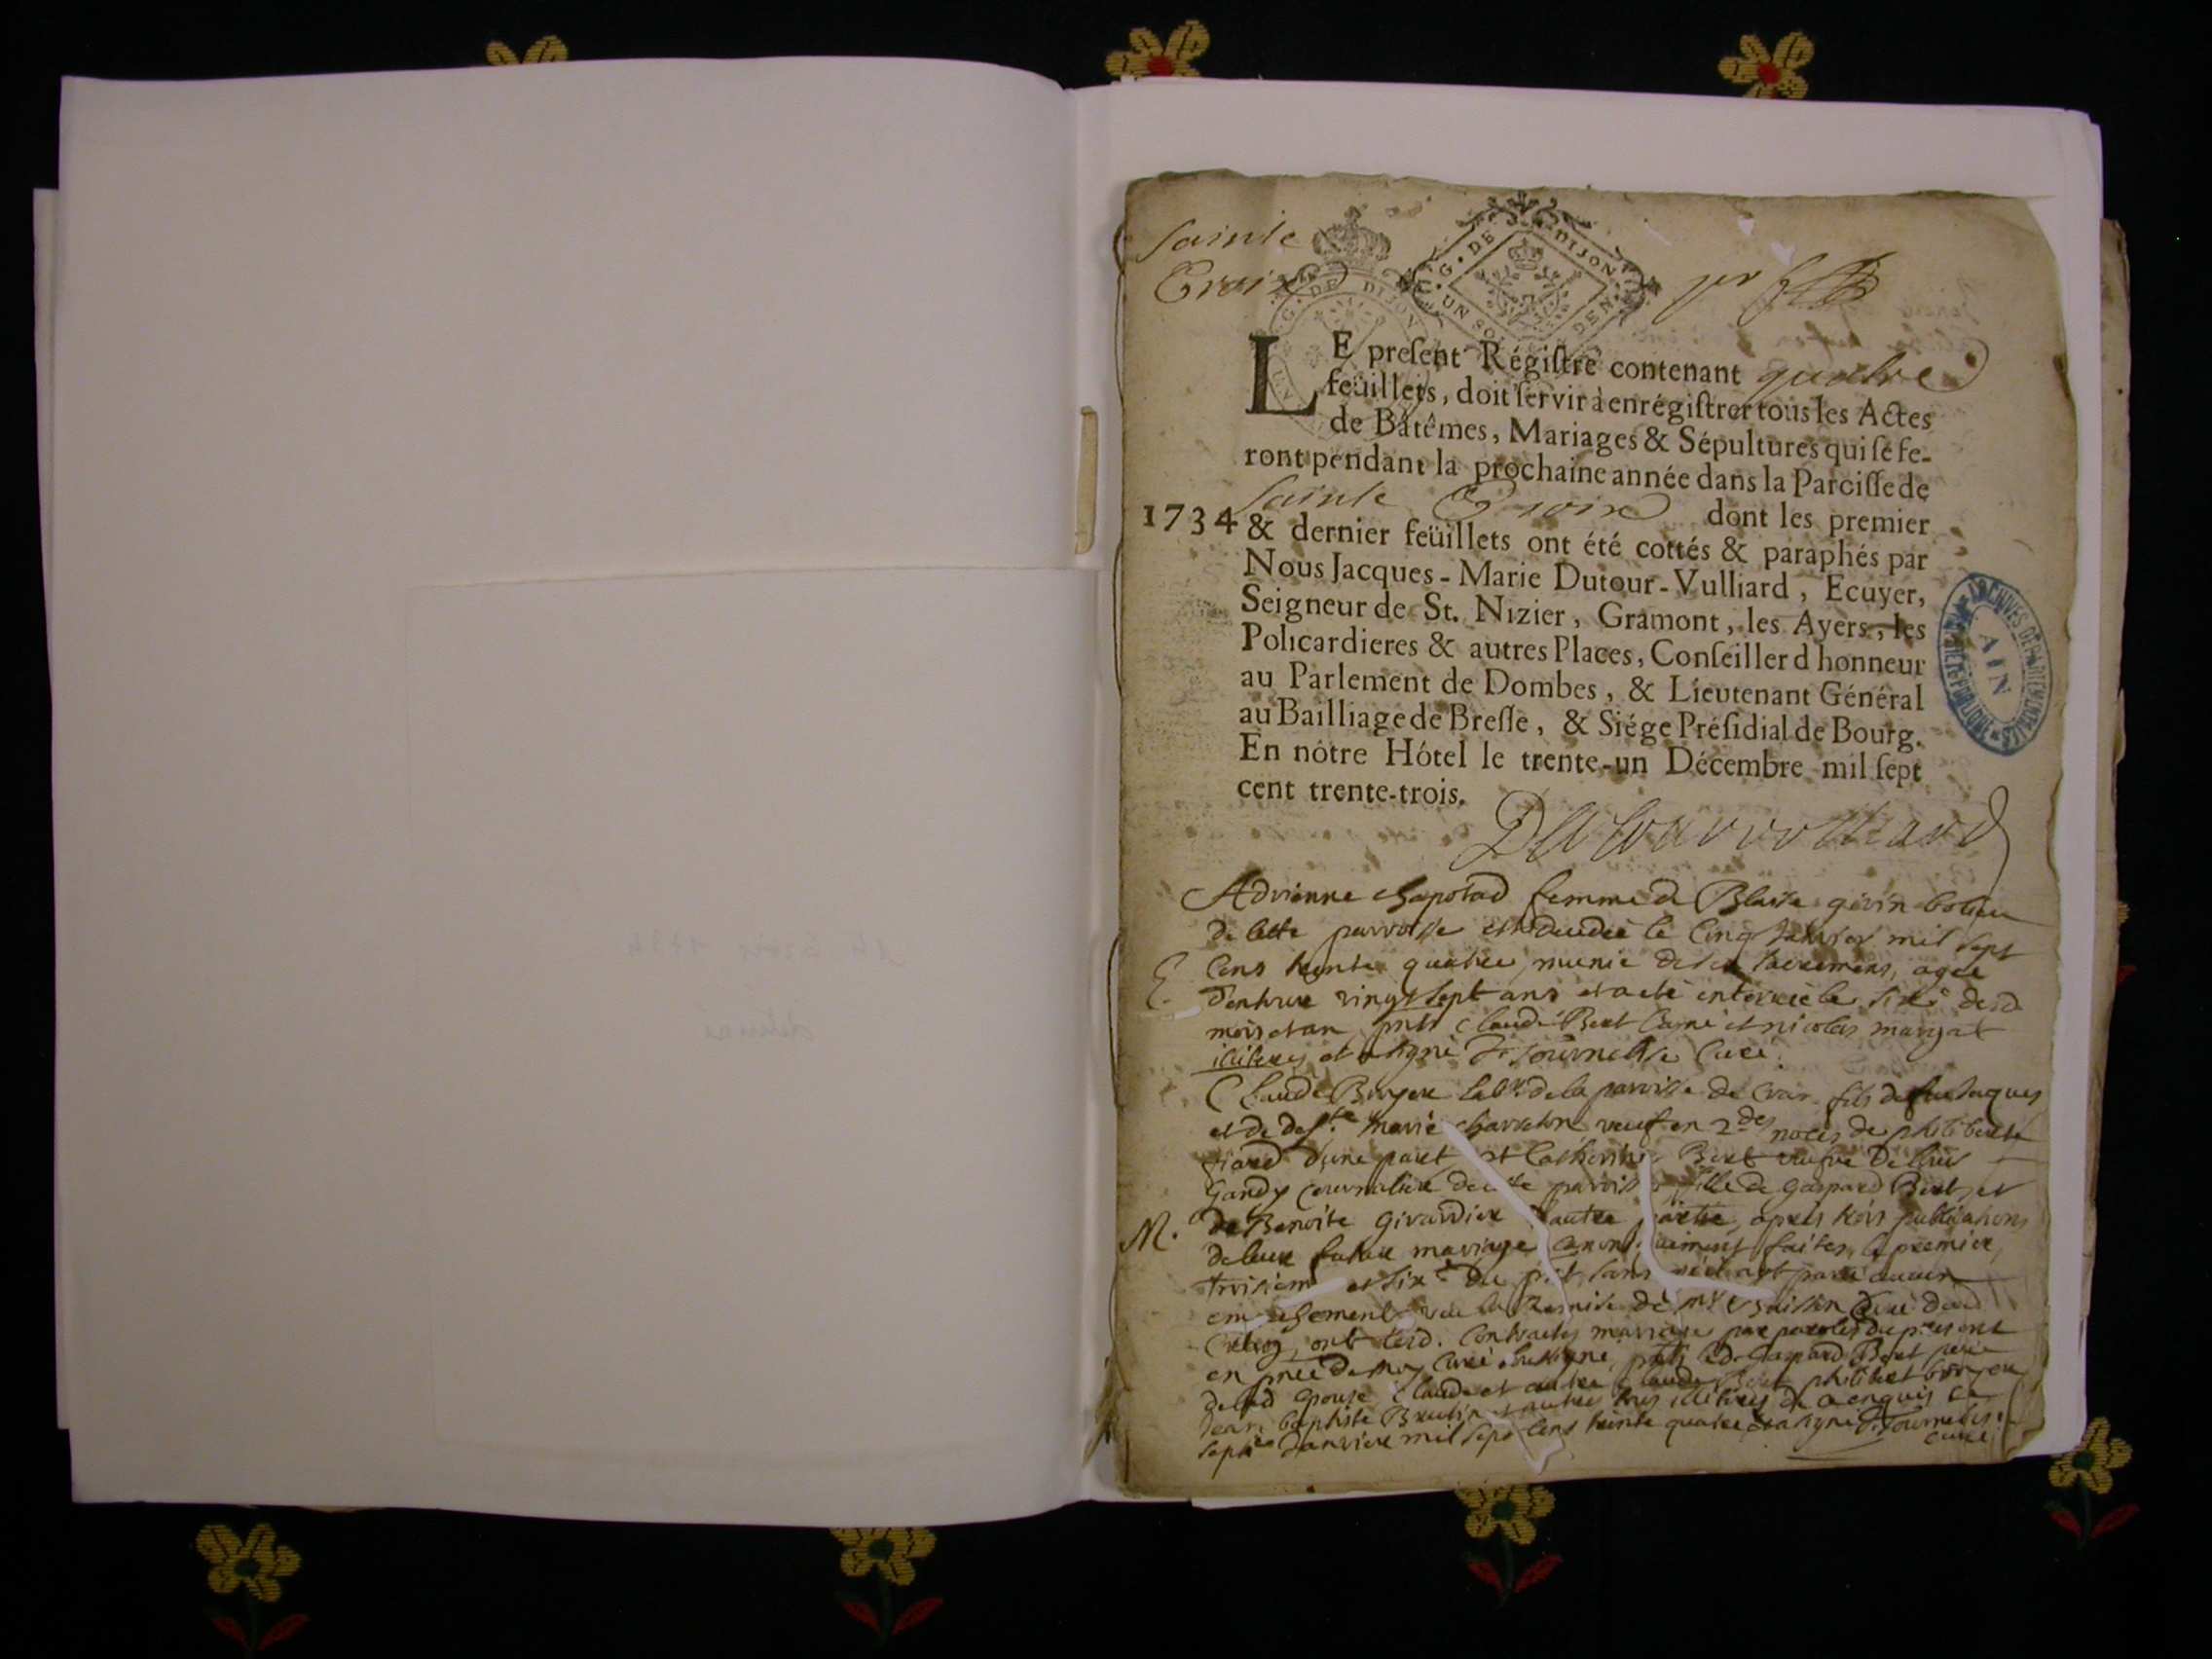 Sainte
Croix
G. DE DIJON
G. DE DIJON
UN SO DEN
pr
LE present Régistre contenant quatre
feüillets, doit servir à enrégistrer tous les Actes
de Bâtêmes, Mariages & Sépultures qui se fe-
ront pendant la prochaine année dans la Paroisse de
Sainte Croix dont les premier
1734 & dernier feüillets ont été cottés & paraphés par
Nous Jacques-Marie Dutour-Vulliard, Ecuyer,
Seigneur de St. Nizier, Gramont, les Ayers, les
Policardieres & autres Places, Conseiller d honneur
au Parlement de Dombes, & Lieutenant Général
au Bailliage de Bresse, & Siége Présidial de Bourg.
En nôtre Hôtel le trente-un Décembre mil sept
cent trente-trois.
Dutourvulliard
ARCHIVES DÉPARTEMENTALES
AIN
Adrienne chapotad femme de Blaise givin
de cette parroisse est decedeé le cinq Janvier mil sept
E. cens trente quatre, munie de sacremens, ageé
d'enhuvre vingt sept ans et a eté enterreé le six.e dud
mois et an pnts Claude Bert et nicolas mangat
illiteres et a signé curé.
Claude Broyer lab.r de la paroisse de cras fils de feu Jaques
et de def.te marie charreton veuf en 2.des noces de philiberte
fiard d'une part et Catherine Bert veufve de
Gandy de cette paroisse fille de Gaspard Bert et
M. de Benoite Girardier d'autre partie, apres trois publications
de leur futur mariage canoniquement faites le premier,
troisieme et six.e du pnt sans aucun
empechement veu la Remise de mr curé dud
ont lesd. contractes mariage par paroles du present
en pnce de moy curé soussigné, pnts led. Gaspard Bert pere
de lad epouse Claude et autre Claude Bert philibert broyer
Jean baptiste et autres tous illiteres de enquis ce
sept.e Janvier mil sept cens trente quatre et a signé
curé